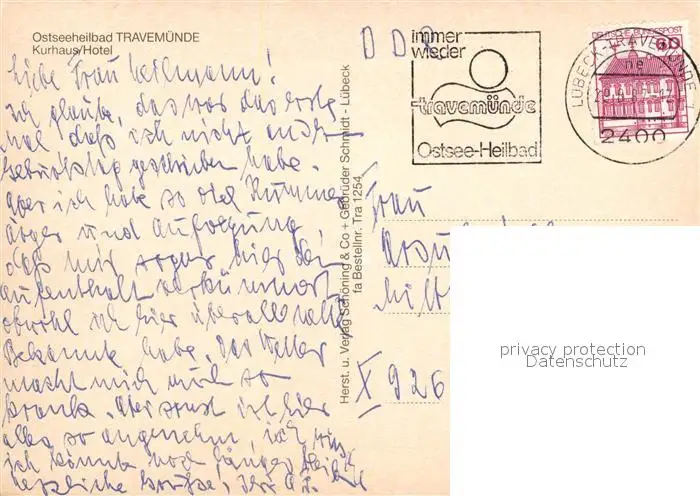 Ostseeheilbad TRAVEMÜNDE
Kurhaus/Hotel
Liebe Frau !
Ich glaube, das war das erste
Mal daß ich nicht zum
Geburtstag geschrieben habe.
Aber ich habe so viel Kummer
Ärger und Aufregung,
daß mir sogar hier der
Aufenthalt verkümmert
obwohl ich hier überall nette
Bekannte habe. Das Wetter
macht mich auch so
krank. Aber sonst ist hier
alles so angenehm, ich
ich könnte noch länger bleiben
herzliche Grüße, Ihre
Herst. u. Verlag Schöning & Co + Gebrüder Schmidt - Lübeck
fa Bestellnr. Tra 1254
DDR
immer
wieder
travemünde
Ostsee-Heilbad
LÜBECK-TRAVEMÜNDE
2400
DEUTSCHE BUNDESPOST
60
Frau
X 926
privacy protection
Datenschutz